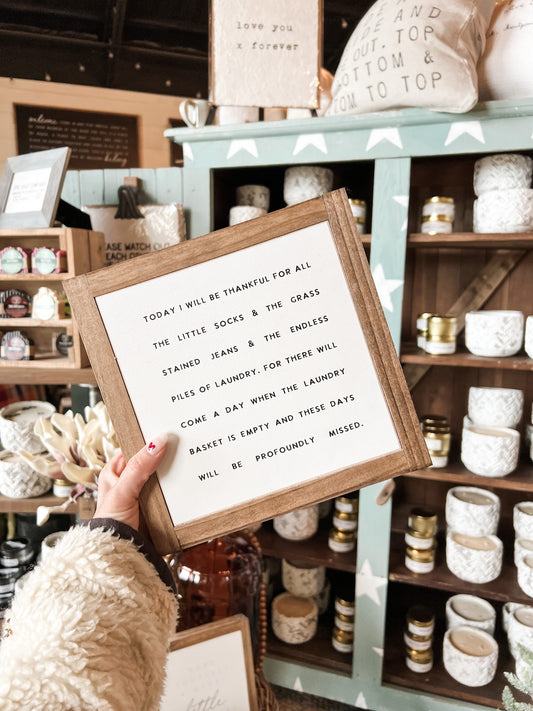 love you
x forever
DE AND
OUT. TOP
BOTTOM &
TOM TO TOP
welcome
ASE WATCH OU
EACH O
TODAY I WILL BE THANKFUL FOR ALL
THE LITTLE SOCKS & THE GRASS
STAINED JEANS & THE ENDLESS
PILES OF LAUNDRY. FOR THERE WILL
COME A DAY WHEN THE LAUNDRY
BASKET IS EMPTY AND THESE DAYS
WILL BE PROFOUNDLY MISSED.
little